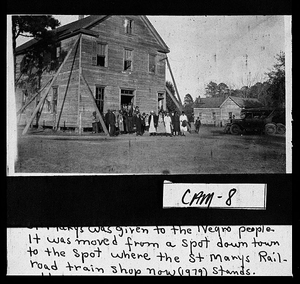 CAM-8
St Marys was given to the Negro people.
It was moved from a spot down town
to the spot where the St Marys Rail-
road train shop now (1979) stands.